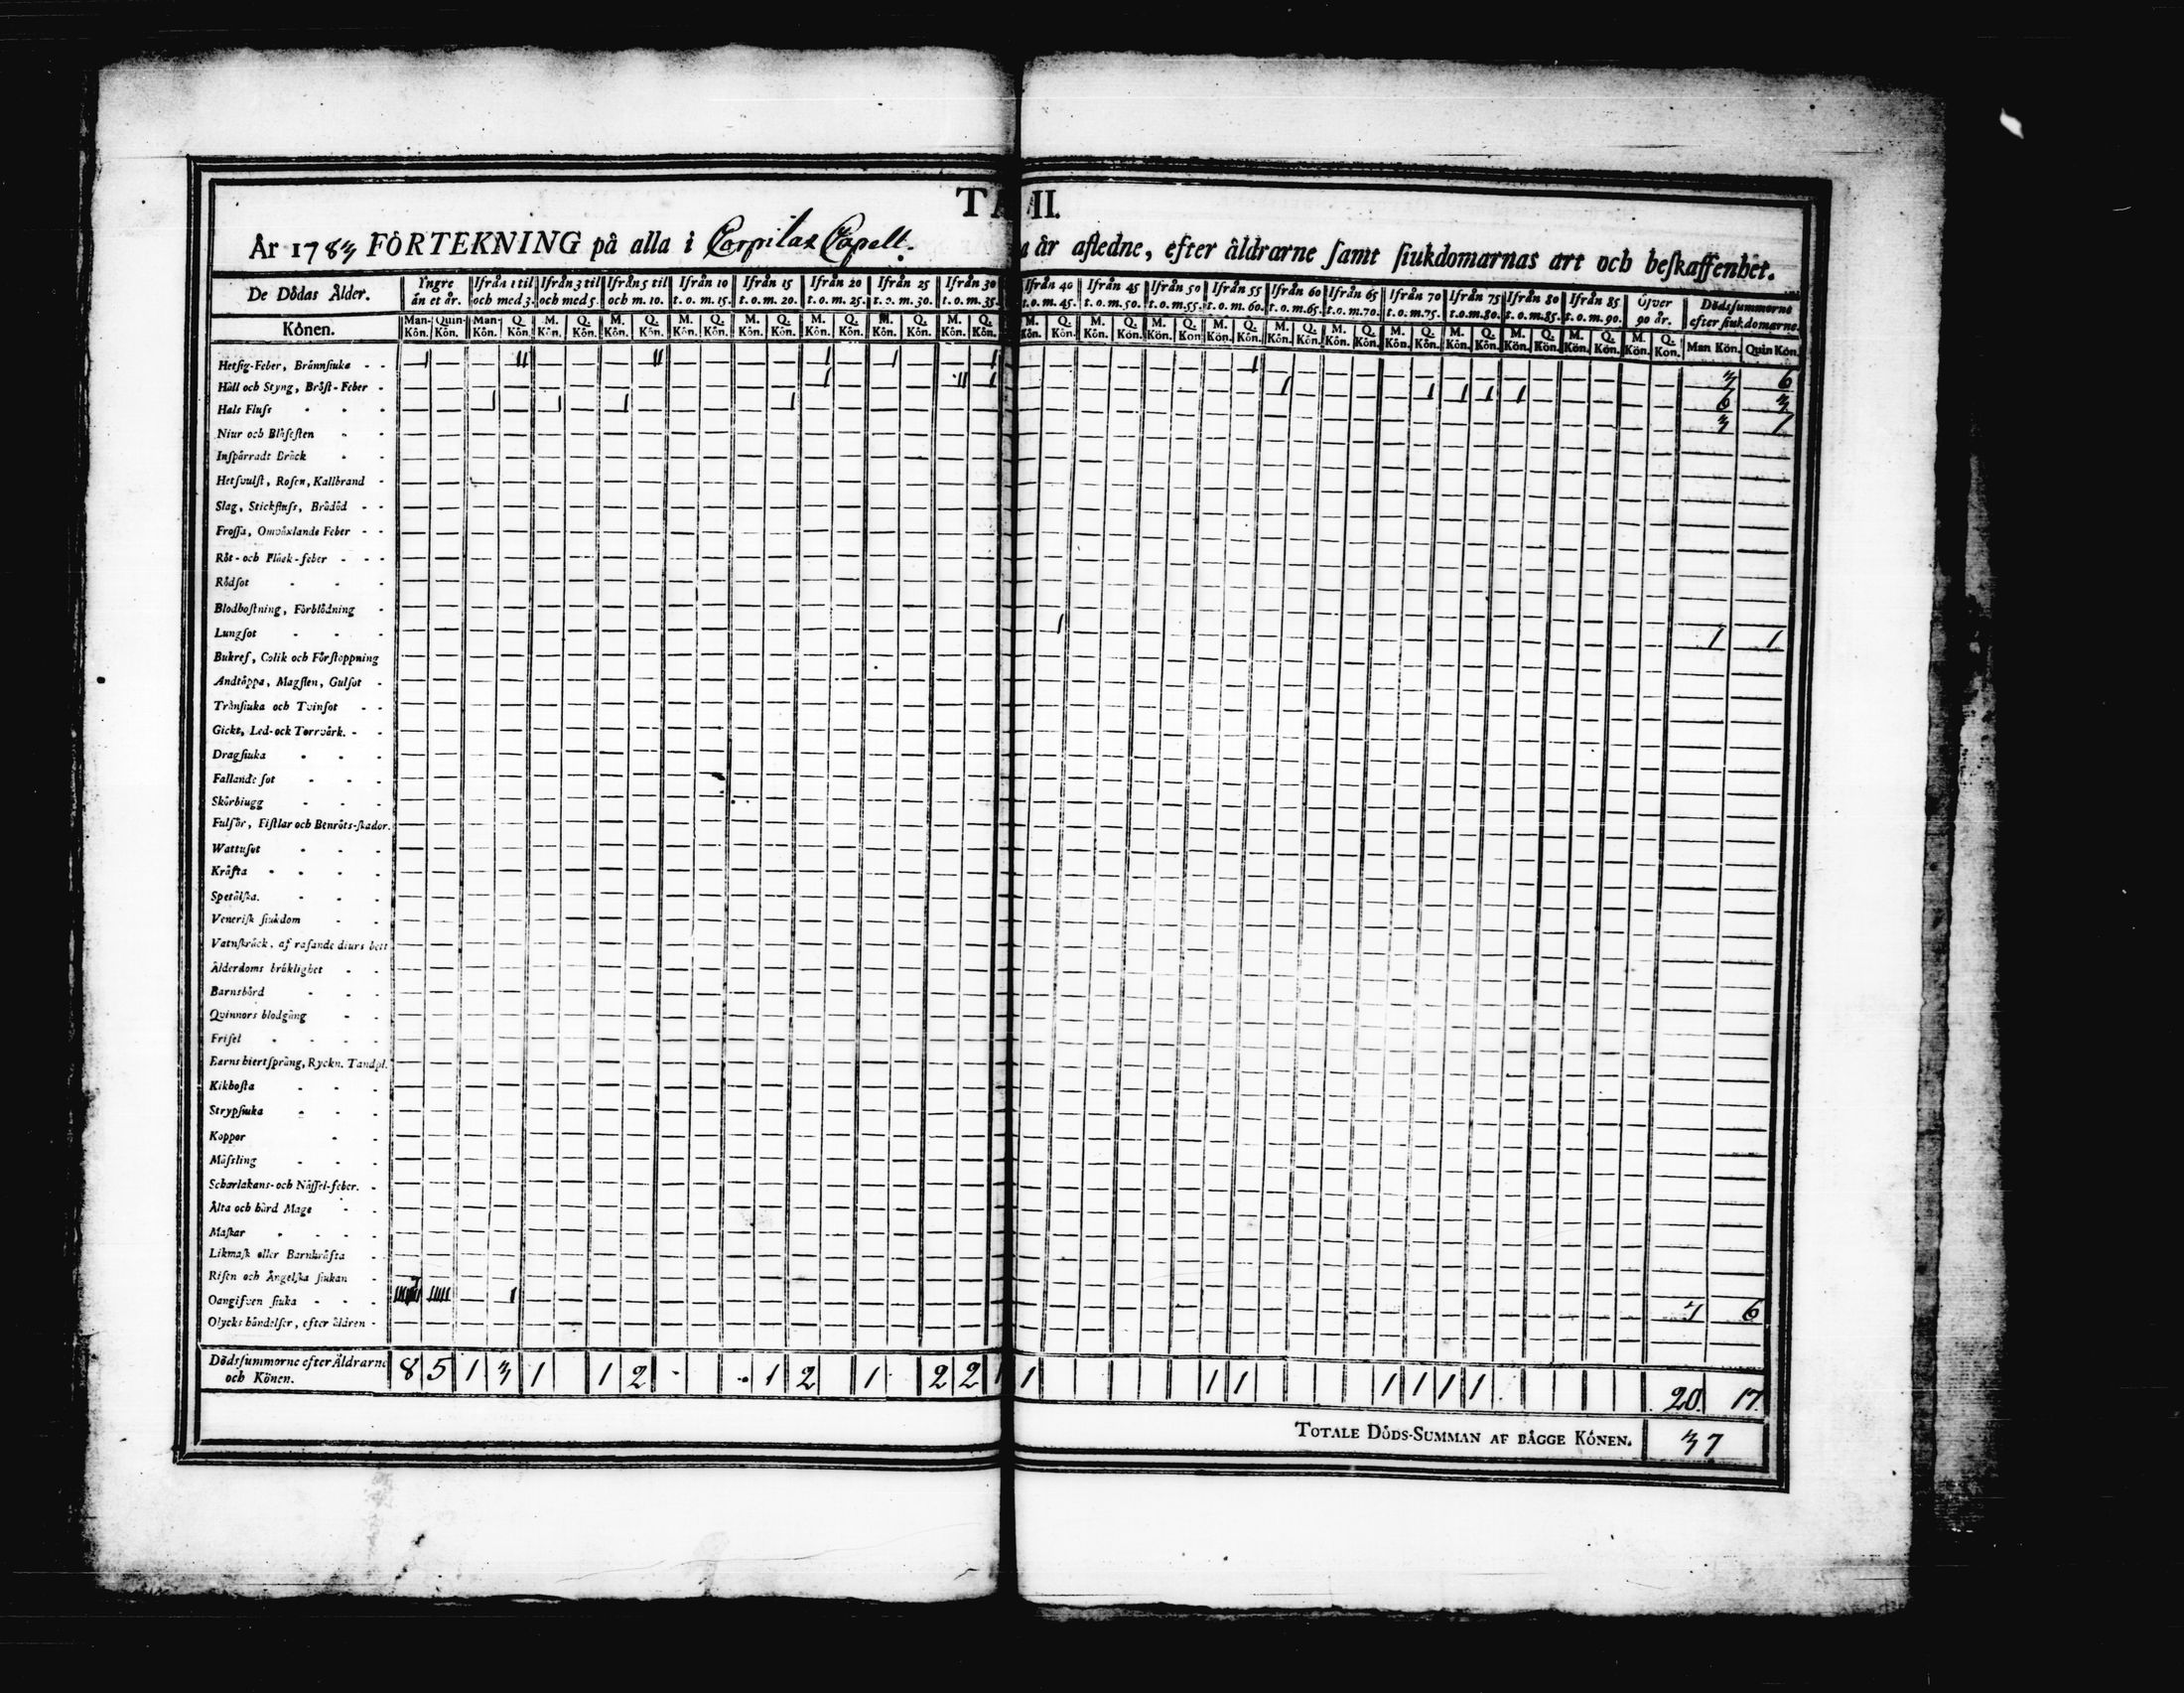 TA II.
År 1783 FÖRTEKNING på alla i Corpilax Capell. a år afledne, efter åldrarne samt siukdomarnas art och beskaffenhet.
De Dödas Ålder. Yngre än et år. Ifrån 1 til och med 3. Ifrån 3 til och med 5. Ifrån 5 til och m. 10. Ifrån 10 t. o. m. 15. Ifrån 15 t. o. m. 20. Ifrån 20 t. o. m. 25. Ifrån 25 t. o. m. 30. Ifrån 30 t. o. m. 35. Ifrån 40 t. o. m. 45. Ifrån 45 t. o. m. 50. Ifrån 50 t. o. m. 55. Ifrån 55 t. o. m. 60. Ifrån 60 t. o. m. 65. Ifrån 65 t. o. m. 70. Ifrån 70 t. o. m. 75. Ifrån 75 t. o. m. 80. Ifrån 80 t. o. m. 85. Ifrån 85 t. o. m. 90. Öfver 90 år. Dödssummorne efter siukdomarne.
Könen. Man-Kön. Quin-Kön. Man-Kön. Q. Kön. M. Kön. Q. Kön. M. Kön. Q. Kön. M. Kön. Q. Kön. M. Kön. Q. Kön. M. Kön. Q. Kön. M. Kön. Q. Kön. M. Kön. Q. Kön. M. Kön. Q. Kön. M. Kön. Q. Kön. M. Kön. Q. Kön. M. Kön. Q. Kön. M. Kön. Q. Kön. M. Kön. Q. Kön. M. Kön. Q. Kön. M. Kön. Q. Kön. M. Kön. Q. Kön. M. Kön. Q. Kön. M. Kön. Q. Kön. Man Kön. Quin Kön.
Hetsig-Feber, Brännsiuka - - 1 11 11 1 1 1 1 3 6
Håll och Styng, Bröst-Feber - 1 11 1 1 1 1 1 1 6 3
Hals Fluss - - - 1 1 1 1 3 1
Niur och Blåsesten - -
Inspärradt Bråck - -
Hetsvulst, Rosen, Kallbrand -
Slag, Stickfluss, Brådöd - -
Frossa, Omväxlande Feber - -
Röt- och Fläck-feber - - -
Rödsot - - -
Blodhostning, Förblödning -
Lungsot - - - 1 1 1
Bukref, Colik och Förstoppning
Andtäppa, Magsten, Gulsot -
Tränsiuka och Tvinsot - -
Gickt, Led- och Torrvärk. - -
Dragsiuka - - -
Fallande sot - - -
Skörbiugg - - -
Fulsår, Fistlar och Benröts-skador.
Wattusot - - -
Kräfta - - - -
Spetälska. - - -
Venerisk siukdom - -
Vatnskräck, af rasande diurs bett
Ålderdoms bräklighet - -
Barnsbörd - - -
Qvinnors blodgång - -
Frisel - - - -
Barns hiertsprång, Ryckn. Tandpl.
Kikhosta - - -
Strypsiuka - - -
Koppor - -
Mässling - - -
Scharlakans- och Nässel-feber. -
Älta och hård Mage - -
Maskar - - - -
Likmask eller Barnkräfta -
Risen och Ängelska siukan -
Oangifven siuka - - - 11111 1 7 6
Olycks händelser, efter åldren -
Dödssummorne efter Åldrarne och Könen. 8 5 1 3 1 1 2 1 2 1 2 2 1 1 1 1 1 1 1 1 20 17
TOTALE DÖDS-SUMMAN AF BÄGGE KÖNEN. 37